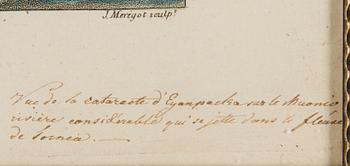 J. Meregot sculp.t
Vue de la cataracte d'Eyanpacka sur le Muonio
rivière considérable qui se jette dans le fleuve
de Torneå.